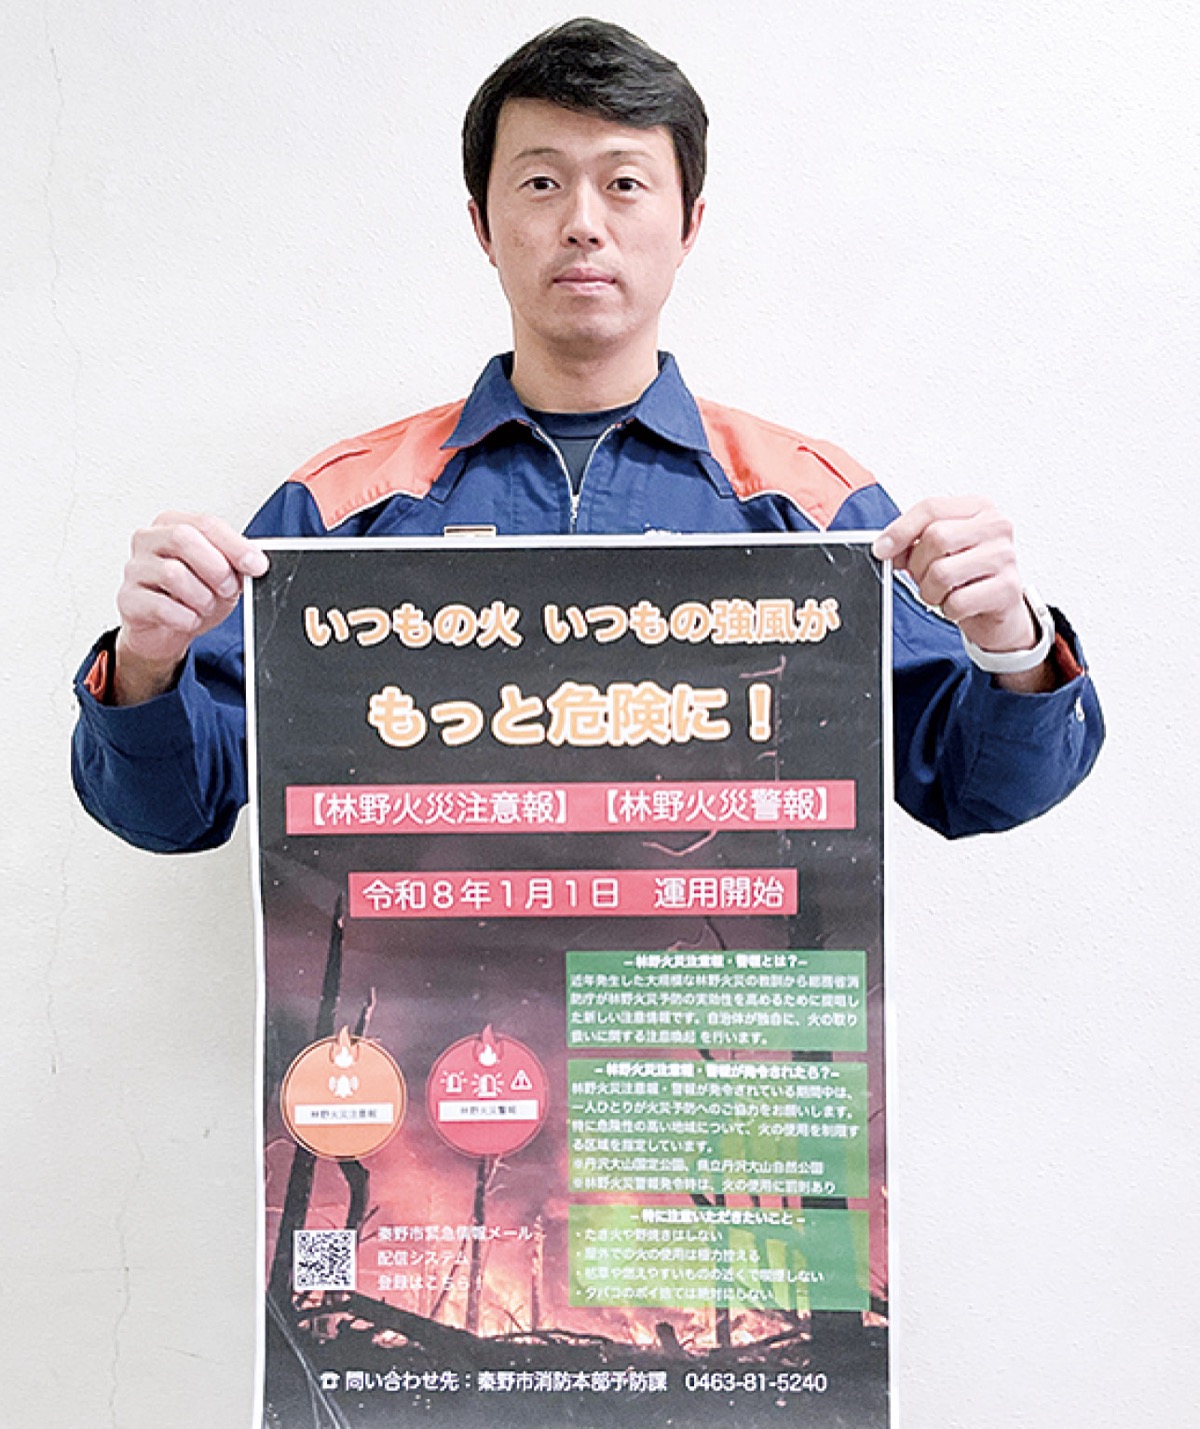 いつもの火 いつもの強風が
もっと危険に！
【林野火災注意報】【林野火災警報】
令和８年１月１日　運用開始
－林野火災注意報・警報とは？－
近年発生した大規模な林野火災の教訓から総務省消
防庁が林野火災予防の実効性を高めるために提唱し
た新しい注意情報です。自治体が独自に、火の取り
扱いに関する注意喚起 を行います。
－林野火災注意報・警報が発令されたら？－
林野火災注意報・警報が発令されている期間中は、
一人ひとりが火災予防へのご協力をお願いします。
特に危険性の高い地域について、火の使用を制限す
る区域を指定しています。
※丹沢大山国定公園、県立丹沢大山自然公園
※林野火災警報発令時は、火の使用に罰則あり
林野火災注意報
林野火災警報
－特に注意いただきたいこと－
・たき火や野焼きはしない
・屋外での火の使用は極力控える
・枯草や燃えやすいものの近くで喫煙しない
・タバコのポイ捨ては絶対にしない
秦野市緊急情報メール
配信システム
登録はこちら！
☎ 問い合わせ先：秦野市消防本部予防課　0463-81-5240